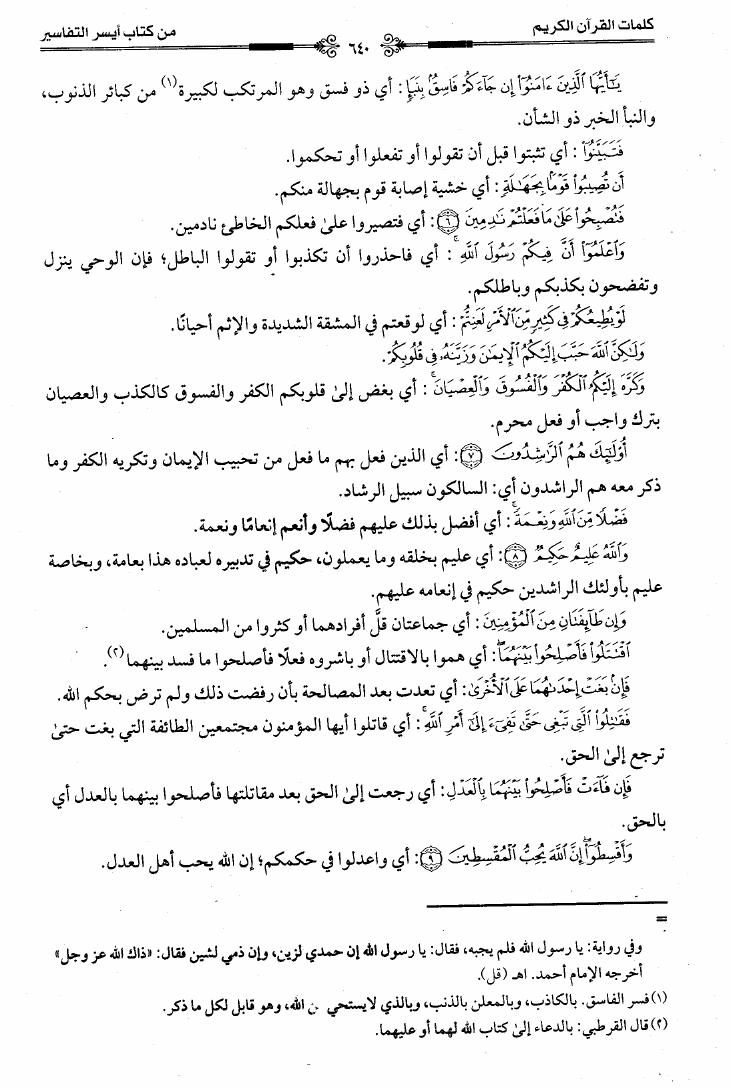 كلمات القرآن الكريم
٦٤٠
من كتاب أيسر التفاسير
يَٰٓأَيُّهَا ٱلَّذِينَ ءَامَنُوٓاْ إِن جَآءَكُمۡ فَاسِقُۢ بِنَبَإٖ: أي ذو فسق وهو المرتكب لكبيرة(١) من كبائر الذنوب،
والنبأ الخبر ذو الشأن.
فَتَبَيَّنُوٓاْ : أي تثبتوا قبل أن تقولوا أو تفعلوا أو تحكموا.
أَن تُصِيبُواْ قَوۡمَۢا بِجَهَٰلَةٖ: أي خشية إصابة قوم بجهالة منكم.
فَتُصۡبِحُواْ عَلَىٰ مَا فَعَلۡتُمۡ نَٰدِمِينَ ٦: أي فتصيروا على فعلكم الخاطئ نادمين.
وَٱعۡلَمُوٓاْ أَنَّ فِيكُمۡ رَسُولَ ٱللَّهِۚ : أي فاحذروا أن تكذبوا أو تقولوا الباطل؛ فإن الوحي ينزل
وتفضحون بكذبكم وباطلكم.
لَوۡ يُطِيعُكُمۡ فِي كَثِيرٖ مِّنَ ٱلۡأَمۡرِ لَعَنِتُّمۡ: أي لوقعتم في المشقة الشديدة والإثم أحيانًا.
وَلَٰكِنَّ ٱللَّهَ حَبَّبَ إِلَيۡكُمُ ٱلۡإِيمَٰنَ وَزَيَّنَهُۥ فِي قُلُوبِكُمۡ.
وَكَرَّهَ إِلَيۡكُمُ ٱلۡكُفۡرَ وَٱلۡفُسُوقَ وَٱلۡعِصۡيَانَۚ : أي بغض إلى قلوبكم الكفر والفسوق كالكذب والعصيان
بترك واجب أو فعل محرم.
أُوْلَٰٓئِكَ هُمُ ٱلرَّٰشِدُونَ ٧: أي الذين فعل بهم ما فعل من تحبيب الإيمان وتكريه الكفر وما
ذكر معه هم الراشدون أي: السالكون سبيل الرشاد.
فَضۡلٗا مِّنَ ٱللَّهِ وَنِعۡمَةٗۚ : أي أفضل بذلك عليهم فضلًا وأنعم إنعامًا ونعمة.
وَٱللَّهُ عَلِيمٌ حَكِيمٞ ٨: أي عليم بخلقه وما يعملون، حكيم في تدبيره لعباده هذا بعامة، وبخاصة
عليم بأولئك الراشدين حكيم في إنعامه عليهم.
وَإِن طَآئِفَتَانِ مِنَ ٱلۡمُؤۡمِنِينَ : أي جماعتان قلَّ أفرادهما أو كثروا من المسلمين.
ٱقۡتَتَلُواْ فَأَصۡلِحُواْ بَيۡنَهُمَاۖ: أي هموا بالاقتتال أو باشروه فعلًا فأصلحوا ما فسد بينهما(٢).
فَإِنۢ بَغَتۡ إِحۡدَىٰهُمَا عَلَى ٱلۡأُخۡرَىٰ: أي تعدت بعد المصالحة بأن رفضت ذلك ولم ترض بحكم الله.
فَقَٰتِلُواْ ٱلَّتِي تَبۡغِي حَتَّىٰ تَفِيٓءَ إِلَىٰٓ أَمۡرِ ٱللَّهِۚ: أي قاتلوا أيها المؤمنون مجتمعين الطائفة التي بغت حتى
ترجع إلى الحق.
فَإِن فَآءَتۡ فَأَصۡلِحُواْ بَيۡنَهُمَا بِٱلۡعَدۡلِ: أي رجعت إلى الحق بعد مقاتلتها فأصلحوا بينهما بالعدل أي
بالحق.
وَأَقۡسِطُوٓاْۖ إِنَّ ٱللَّهَ يُحِبُّ ٱلۡمُقۡسِطِينَ ٩: أي واعدلوا في حكمكم؛ إن الله يحب أهل العدل.
=
وفي رواية: يا رسول الله فلم يجبه، فقال: يا رسول الله إن حمدي لزين، وإن ذمي لشين فقال: «ذاك الله عز وجل»
أخرجه الإمام أحمد. اهـ (قل).
(١) فسر الفاسق. بالكاذب، وبالمعلن بالذنب، وبالذي لا يستحي الله، وهو قابل لكل ما ذكر.
(٢) قال القرطبي: بالدعاء إلى كتاب الله لهما أو عليهما.